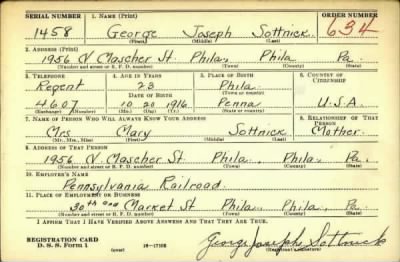 SERIAL NUMBER 1. NAME (Print) ORDER NUMBER
1458 George Joseph Sottnick 634
(First) (Middle) (Last)
2. ADDRESS (Print)
1956 N Mascher St. Phila, Phila Pa.
(Number and street or R. F. D. number) (Town) (County) (State)
3. TELEPHONE 4. AGE IN YEARS 5. PLACE OF BIRTH 6. COUNTRY OF CITIZENSHIP
Regent 23 Phila
DATE OF BIRTH (Town or county)
4607 10 20 1916 Penna U.S.A.
(Exchange) (Number) (Mo.) (Day) (Yr.) (State or country)
7. NAME OF PERSON WHO WILL ALWAYS KNOW YOUR ADDRESS 8. RELATIONSHIP OF THAT PERSON
Mrs Mary Sottnick Mother
(Mr., Mrs., Miss) (First) (Middle) (Last)
9. ADDRESS OF THAT PERSON
1956 N. Mascher St. Phila, Phila, Pa.
(Number and street or R. F. D. number) (Town) (County) (State)
10. EMPLOYER'S NAME
Pennsylvania Railroad
11. PLACE OF EMPLOYMENT OR BUSINESS
30th and Market St. Phila, Phila Pa.
(Number and street or R. F. D. number) (Town) (County) (State)
I AFFIRM THAT I HAVE VERIFIED ABOVE ANSWERS AND THAT THEY ARE TRUE.
REGISTRATION CARD
D. S. S. Form 1 (over) George Joseph Sottnick